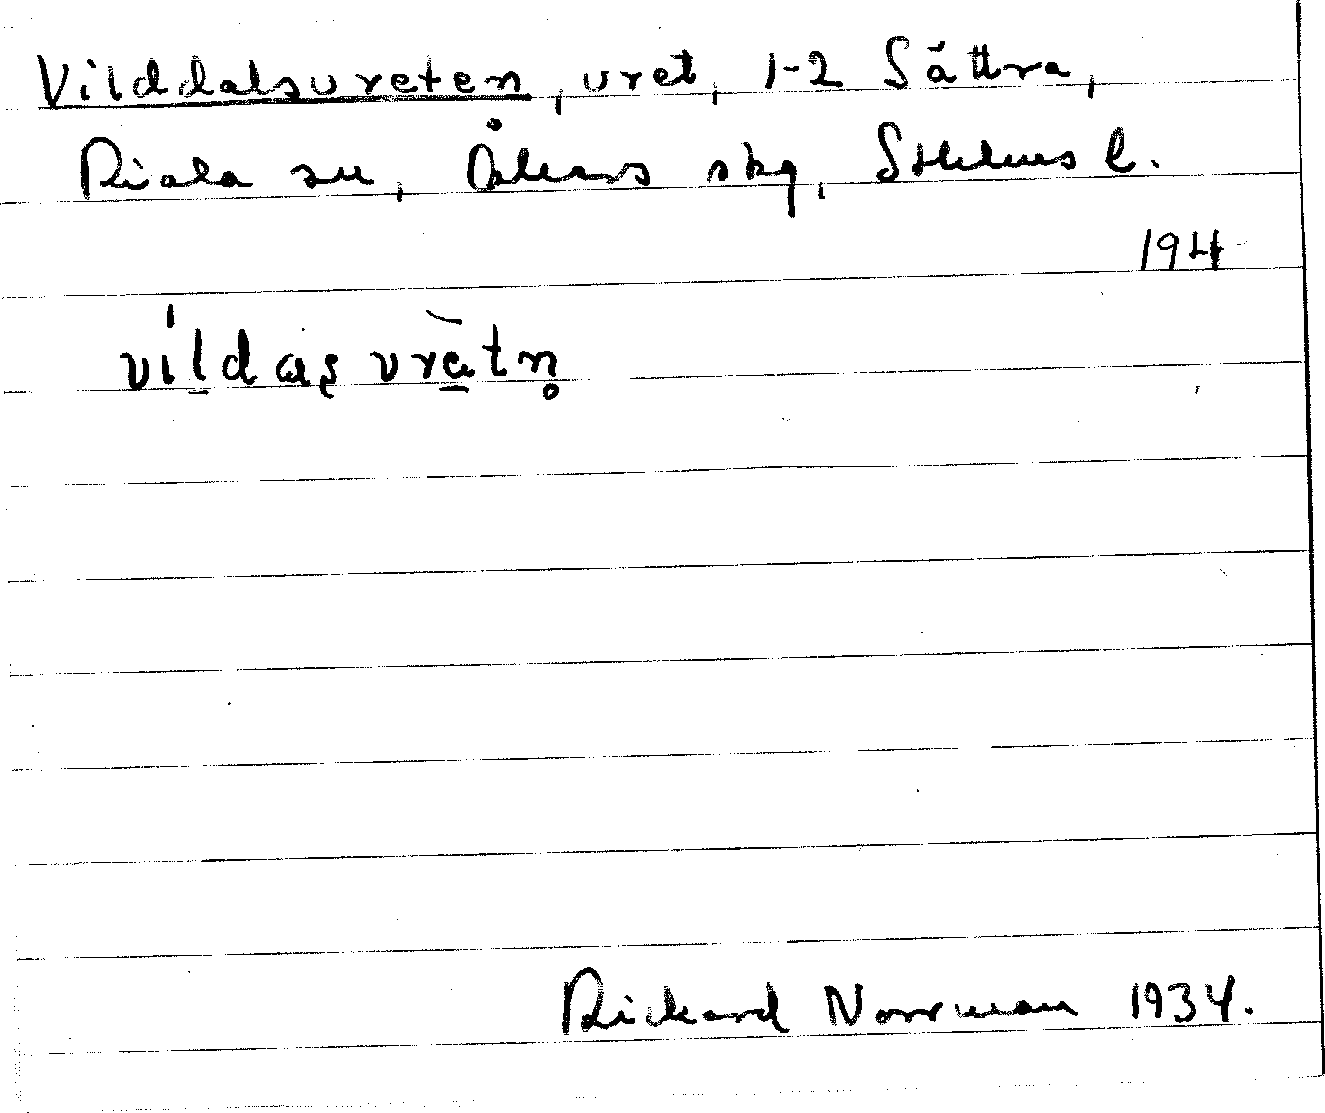 Vilddalsvreten, vret, 1-2 Sättra,
Riala sn, Åkers skg, Sthlms l.
194
vildas vrätn̥
Rickard Norrman 1934.